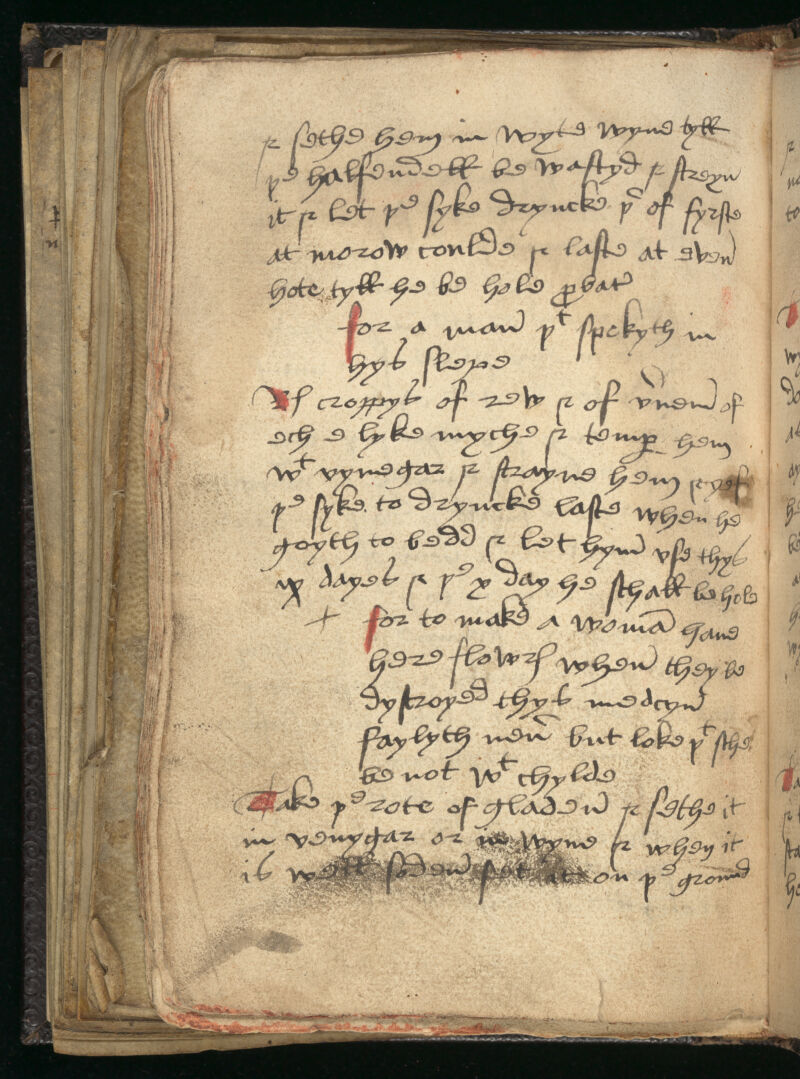 & sethe hem in wyte wyne tyll
þe halfendell be wastyd & streyn
it & let þe syke dryncke þt of fyrste
at morow coulde & laste at even
hote tyll he be hole probat
for a man þt spekyth in
hys slepe
croppys of rew & of of
ech e lyke myche & temp hem
wt vynegar & strayne hem & yef
þe syke to dryncke laste when he
goyth to bedd & let hym use thys
ix dayes & þe x day he schall be hole
+ for to make a woma have
here flowrs when they be
dystroyed thys medcyn
faylyth nev but loke þt sche
be not wt chylde
Take þe rote of gladen & sethe it
in venygar or in wyne & when it
is well soden set it on þe ground